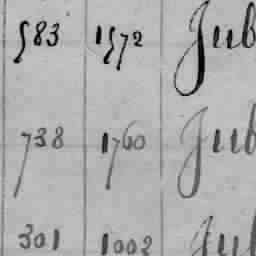 583 1572 Jub
738 1760 Jub
301 1002 Jul